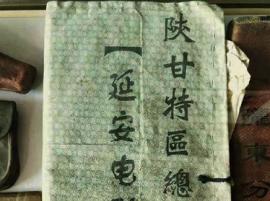 陕甘特區總
【延安电
東分